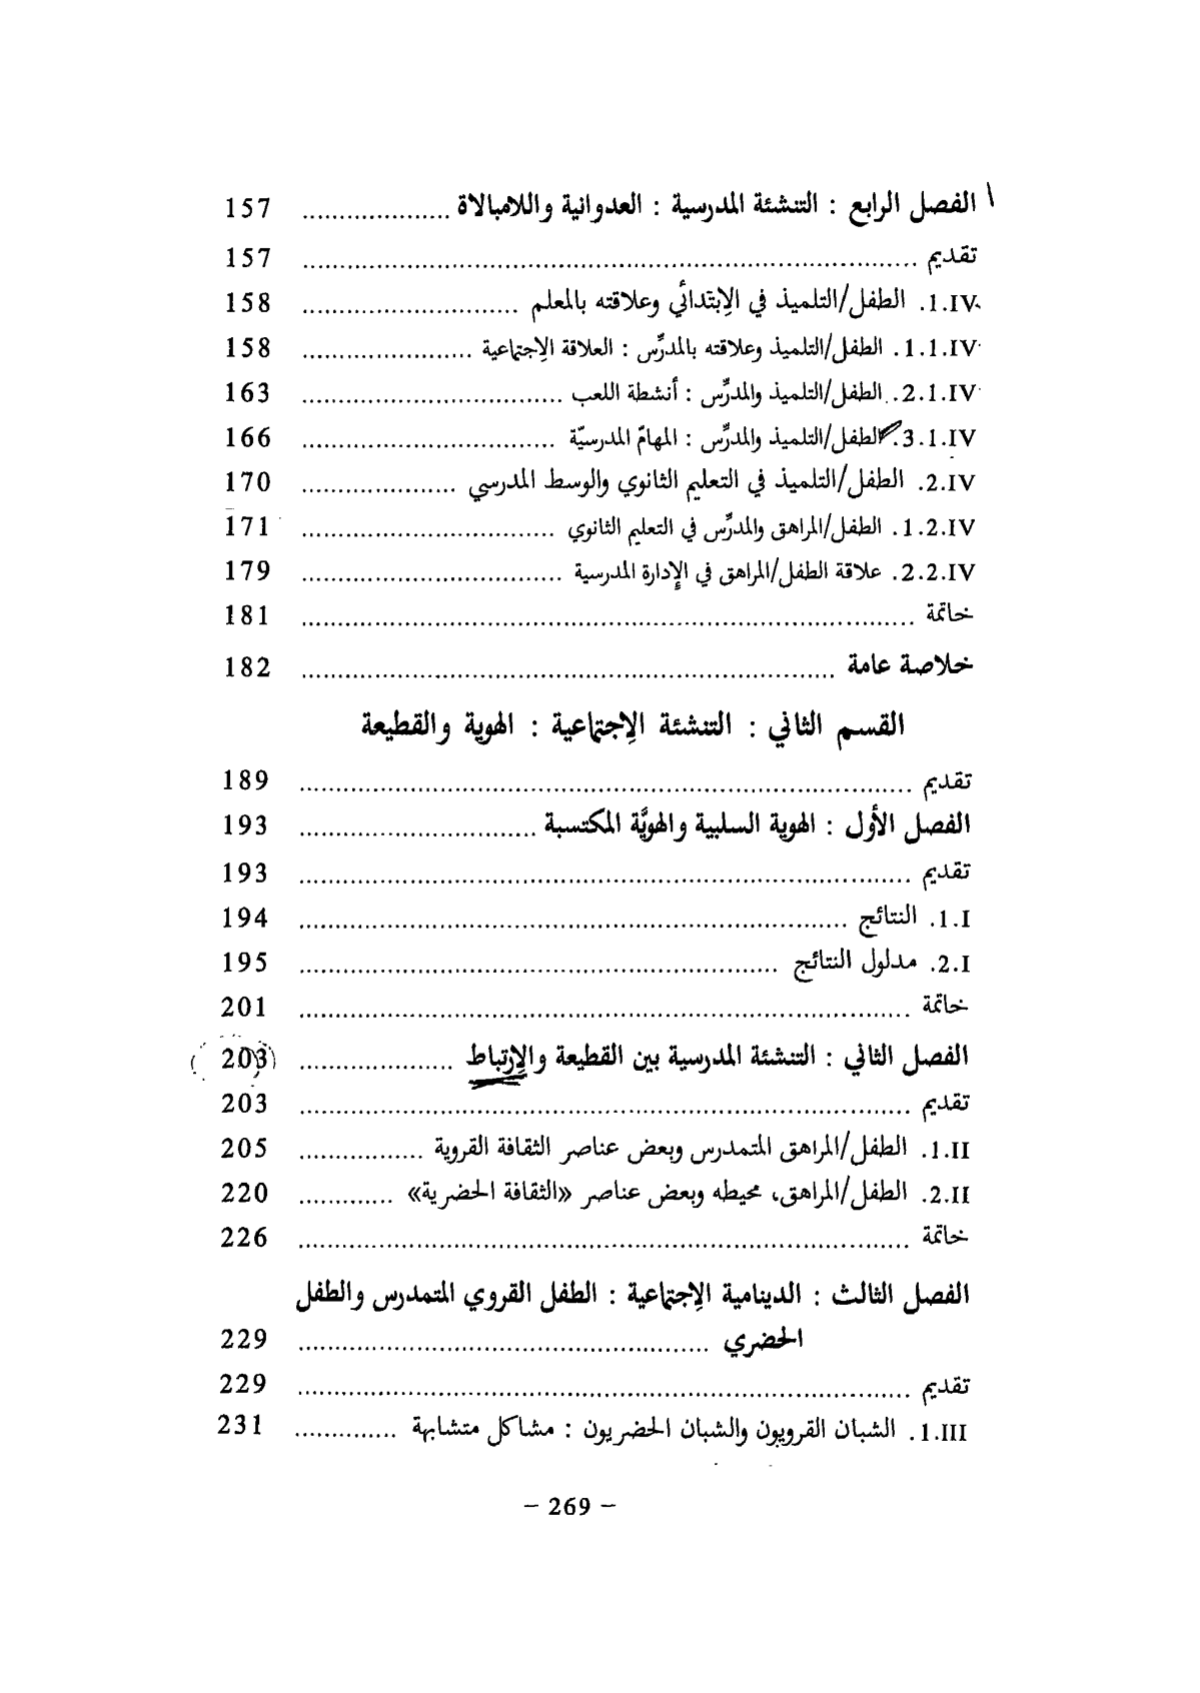 الفصل الرابع : التنشئة المدرسية : العدوانية واللامبالاة .................... 157
تقديم .................... 157
1.IV. الطفل/التلميذ في الإبتدائي وعلاقته بالمعلم .................... 158
1.1.IV. الطفل/التلميذ وعلاقته بالمدرِّس : العلاقة الإجتماعية .................... 158
2.1.IV. الطفل/التلميذ والمدرِّس : أنشطة اللعب .................... 163
3.1.IV. الطفل/التلميذ والمدرِّس : المهامّ المدرسيّة .................... 166
2.IV. الطفل/التلميذ في التعليم الثانوي والوسط المدرسي .................... 170
1.2.IV. الطفل/المراهق والمدرِّس في التعليم الثانوي .................... 171
2.2.IV. علاقة الطفل/المراهق في الإدارة المدرسية .................... 179
خاتمة .................... 181
خلاصة عامة .................... 182
القسم الثاني : التنشئة الإجتماعية : الهوية والقطيعة
تقديم .................... 189
الفصل الأول : الهوية السلبية والهويَّة المكتسبة .................... 193
تقديم .................... 193
1.I. النتائج .................... 194
2.I. مدلول النتائج .................... 195
خاتمة .................... 201
الفصل الثاني : التنشئة المدرسية بين القطيعة والإرتباط .................... 203
تقديم .................... 203
1.II. الطفل/المراهق المتمدرس وبعض عناصر الثقافة القروية .................... 205
2.II. الطفل/المراهق، محيطه وبعض عناصر «الثقافة الحضرية» .................... 220
خاتمة .................... 226
الفصل الثالث : الدينامية الإجتماعية : الطفل القروي المتمدرس والطفل
الحضري .................... 229
تقديم .................... 229
1.III. الشبان القرويون والشبان الحضريون : مشاكل متشابهة .................... 231
– 269 –